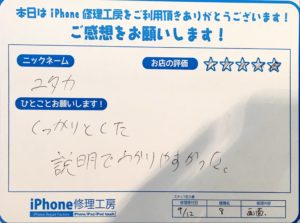 本日は iPhone 修理工房をご利用頂きありがとうございます!
ご感想をお願いします!
ニックネーム
ユタカ
お店の評価
☆☆☆☆☆
ひとことお願いします!
しっかりとした
説明でわかりやすかった。
iPhone修理工房
iPhone Repair Factory
iPhone/iPad/iPod touch
9/12
8
画面